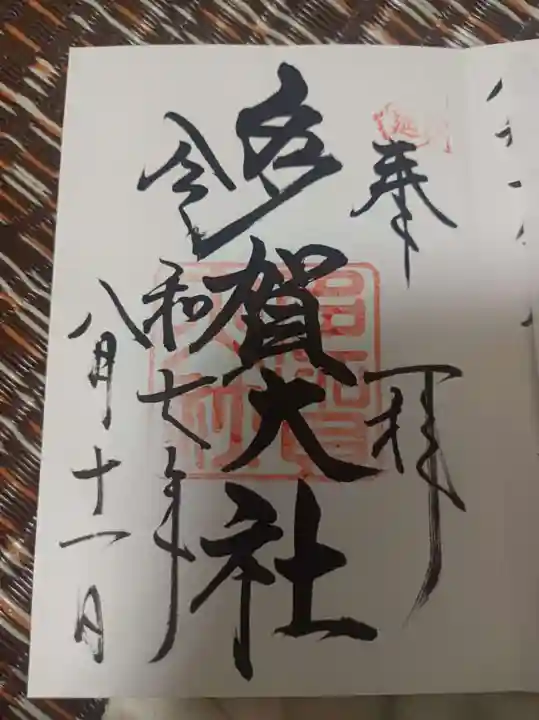 奉拝
多賀大社
令和七年
八月十一日